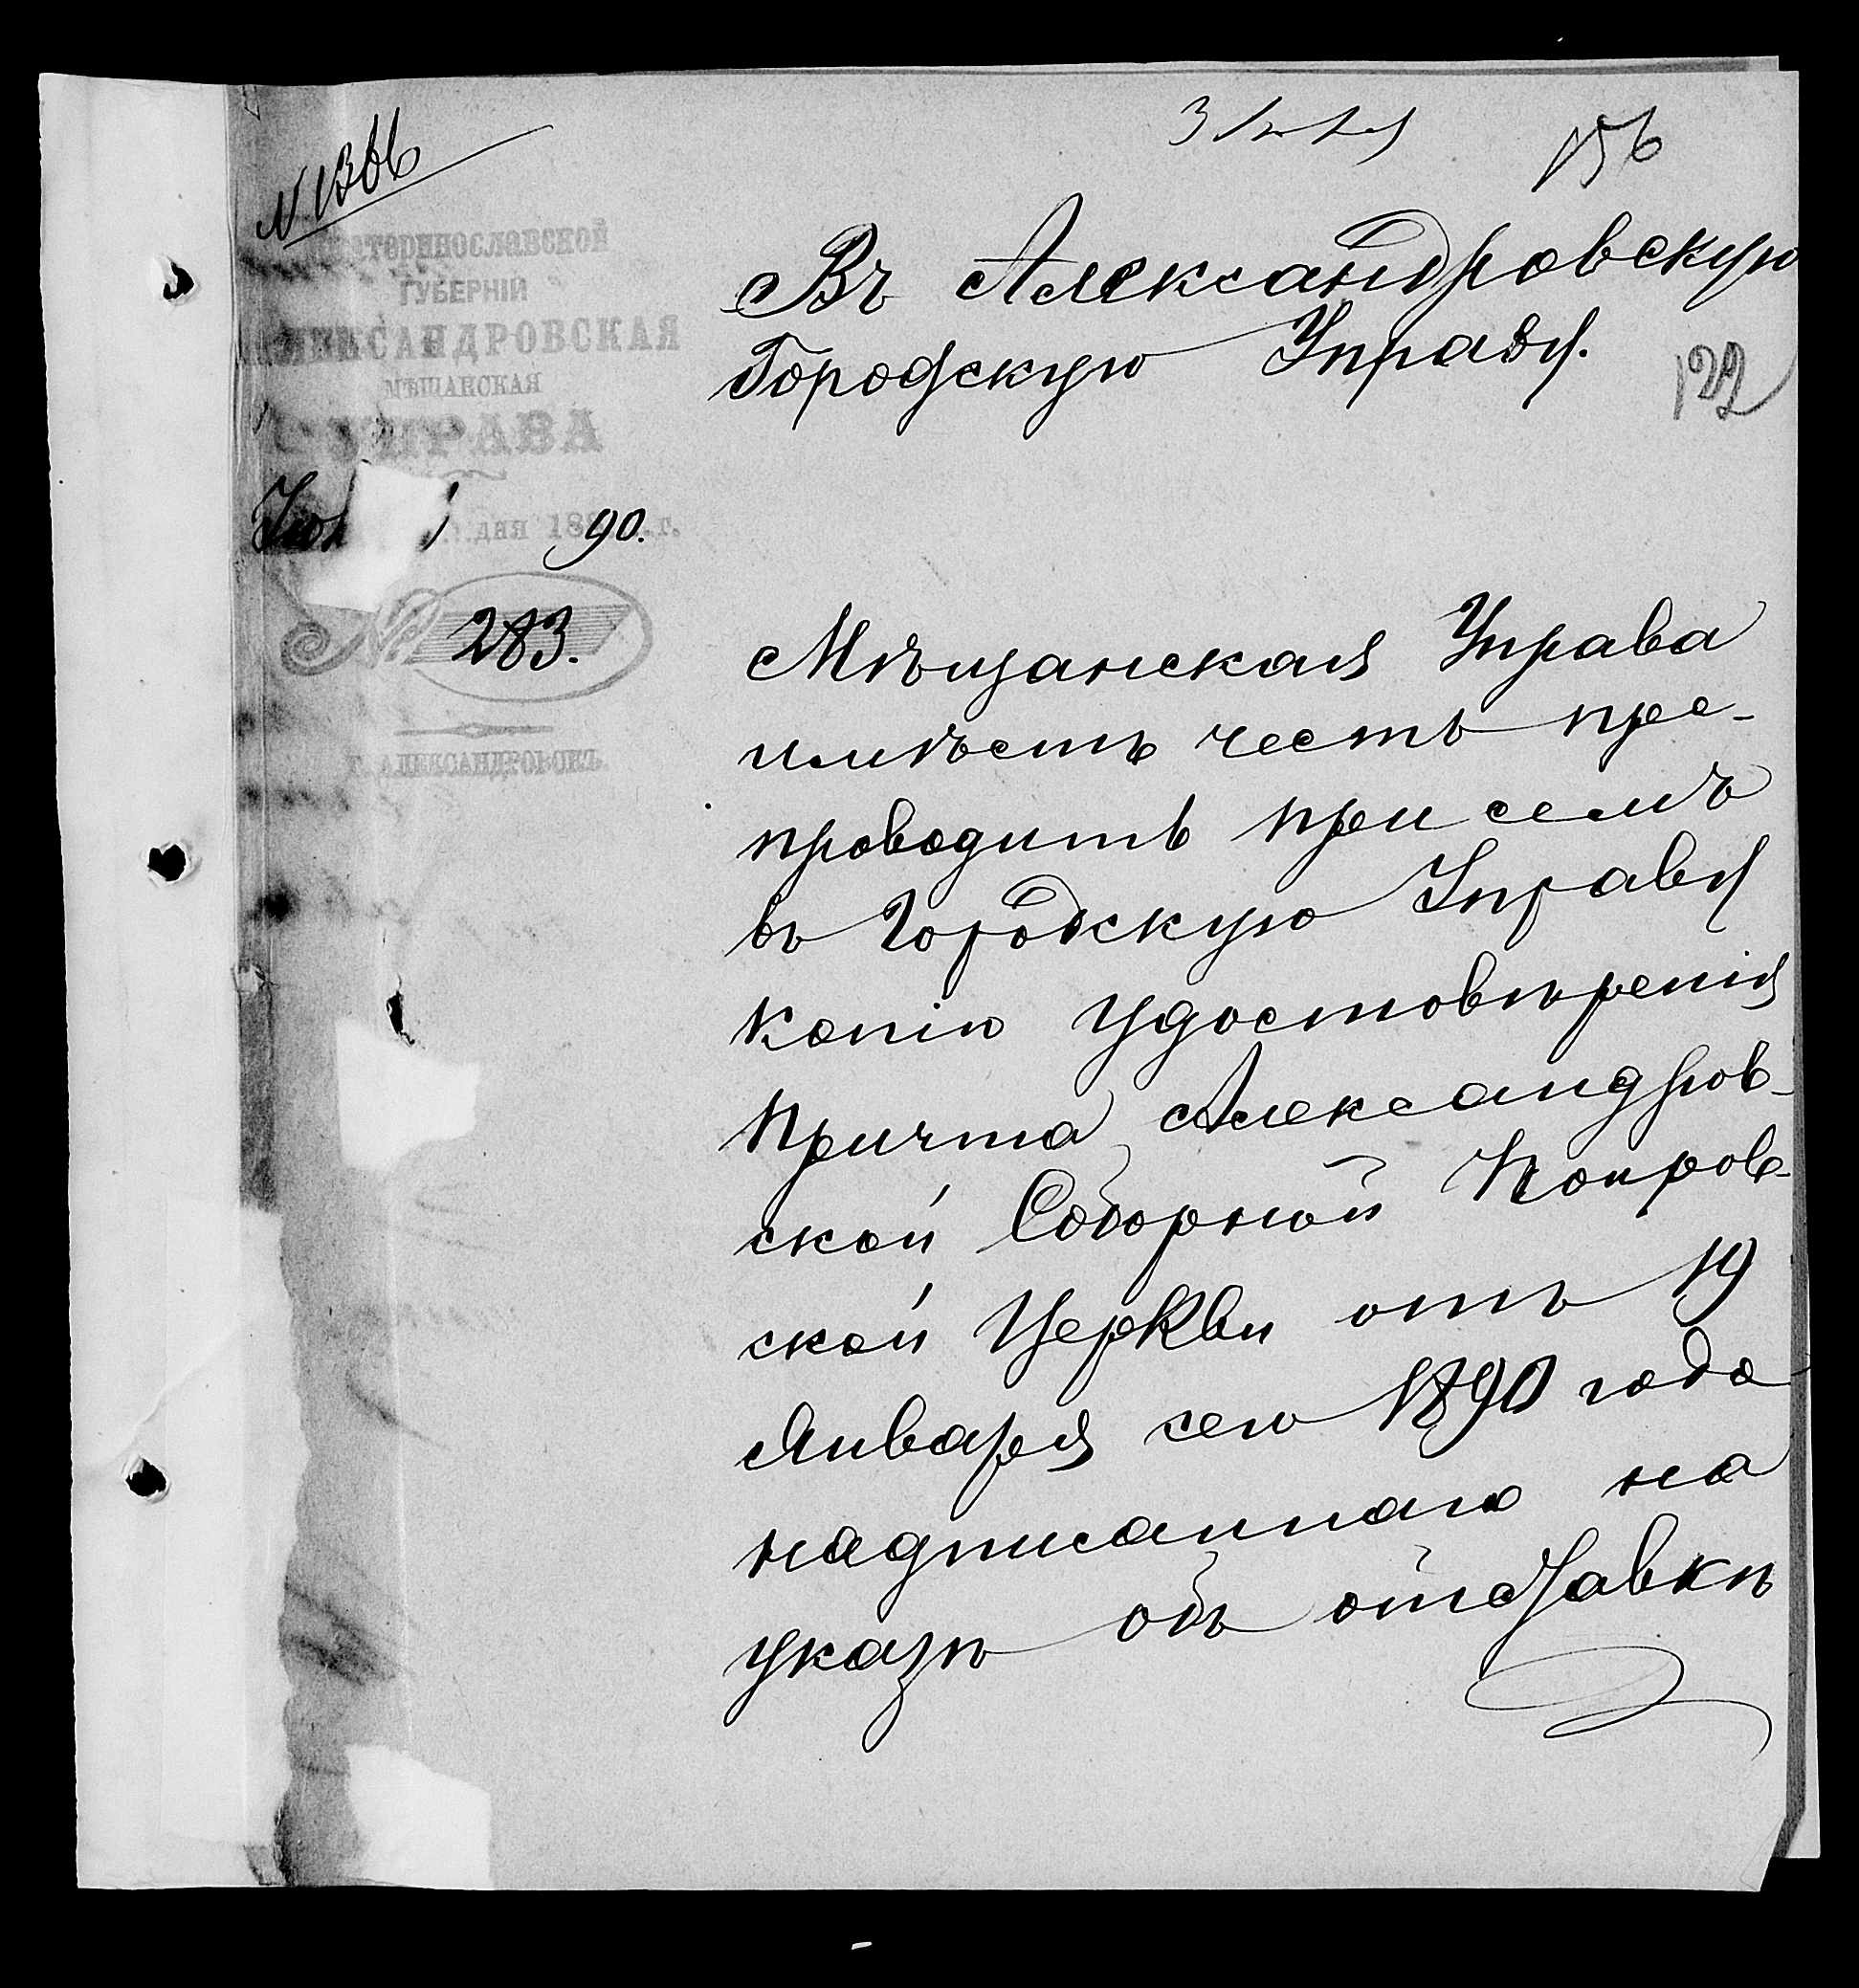 156
№ 1366
Екатеринославской
ГУБЕРНІИ
АЛЕКСАНДРОВСКАЯ
МѢЩАНСКАЯ
УПРАВА
дня 188 г.
90.
283.
Г. АЛЕКСАНДРОВСКЪ.
Въ Александровскую
Городскую Управу.
122
Мѣщанская Управа
имѣетъ честь пре-
проводить при семъ
въ Городскую Управу
копію удостовѣренія
причта Александров-
ской Соборной Покров-
ской Церкви отъ 19
Января сего 1890 года
надписаннаго на
указѣ объ отставкѣ